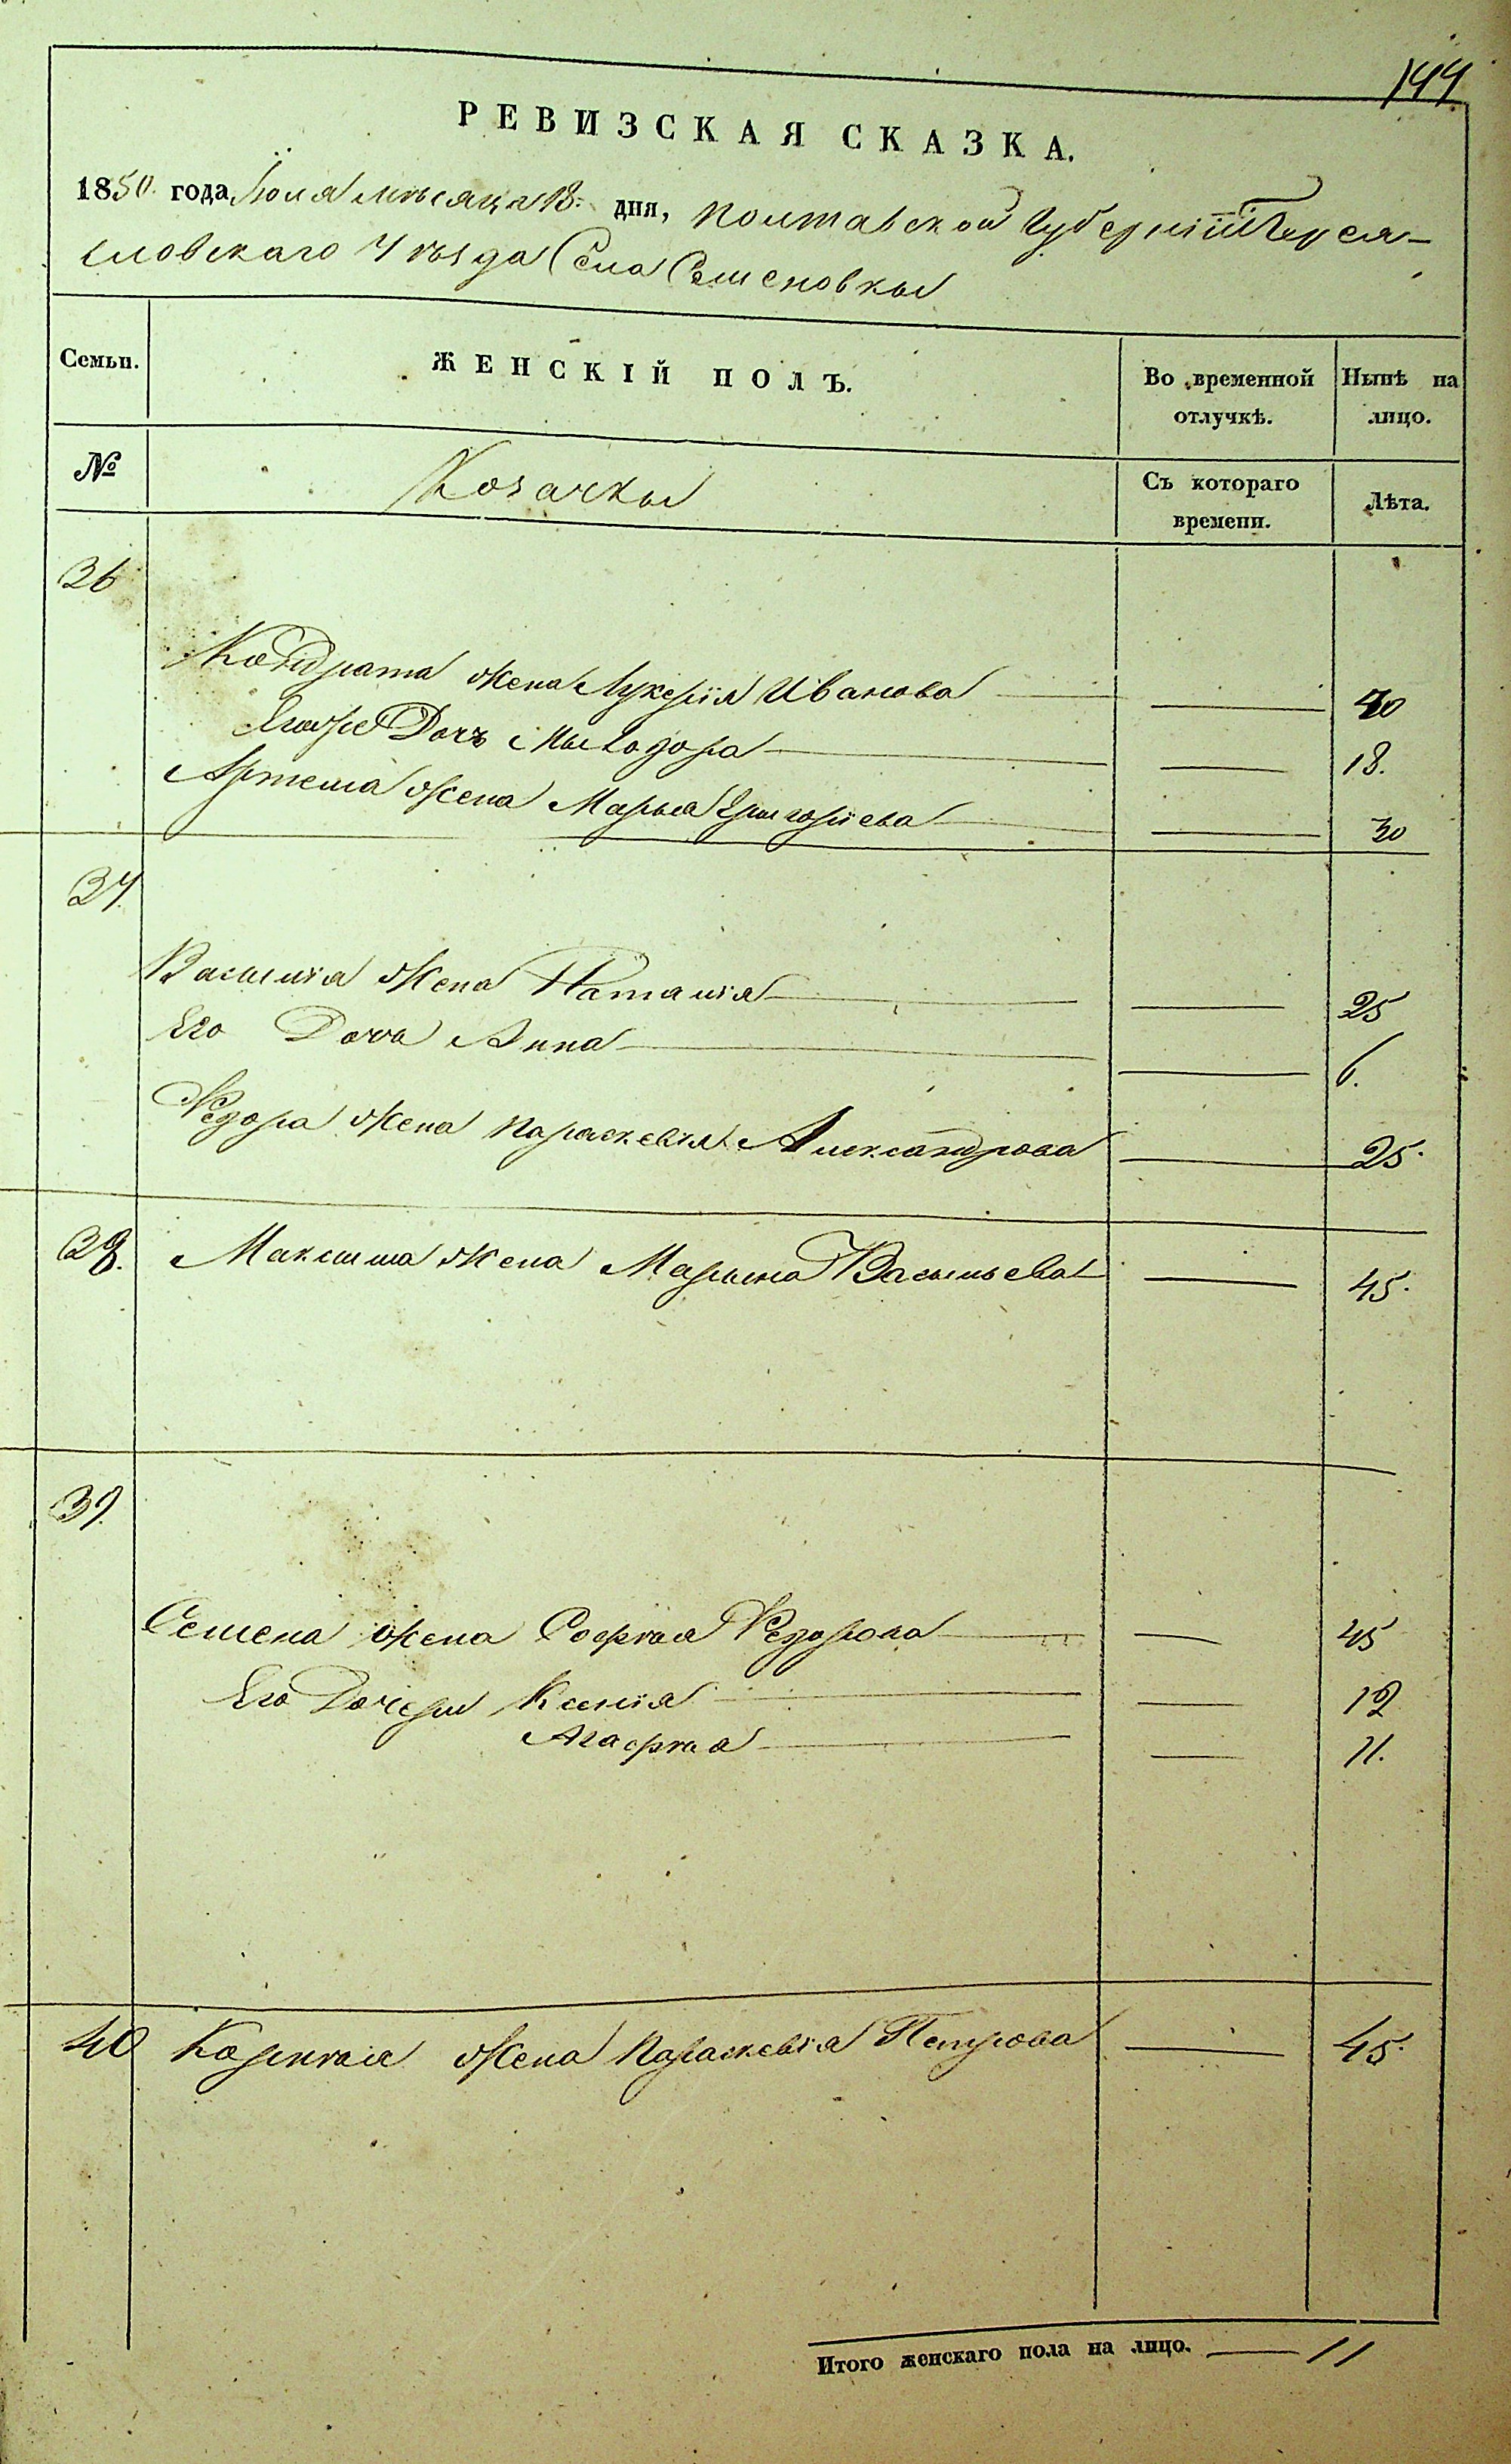 144
РЕВИЗСКАЯ СКАЗКА.
1850 года Іюля мѣсяца 18 дня, Полтавской Губерніи Перея-
словскаго Уѣзда Села Семеновкы
Семьи. ЖЕНСКІЙ ПОЛЪ. Во временной отлучкѣ. Нынѣ на лицо.
№ Козачкы Съ котораго времени. Лѣта.
36
Кондрата жена Лукерія Иванова 40
Дочъ 18.
Артема жена Марья Григоріева 30
37
Василія жена Наталія 25
Его Доча Анна 6.
Федора жена Параскевія Александрова 25.
38. Максима жена Марына Васыльева 45.
39.
Семена жена Софѣя Федорова 45
Его Дочеры Ксенія 12
Агафѣя 11.
40 Карпѣя жена Параскевія Петрова 45.
Итого женскаго пола на лицо. 11